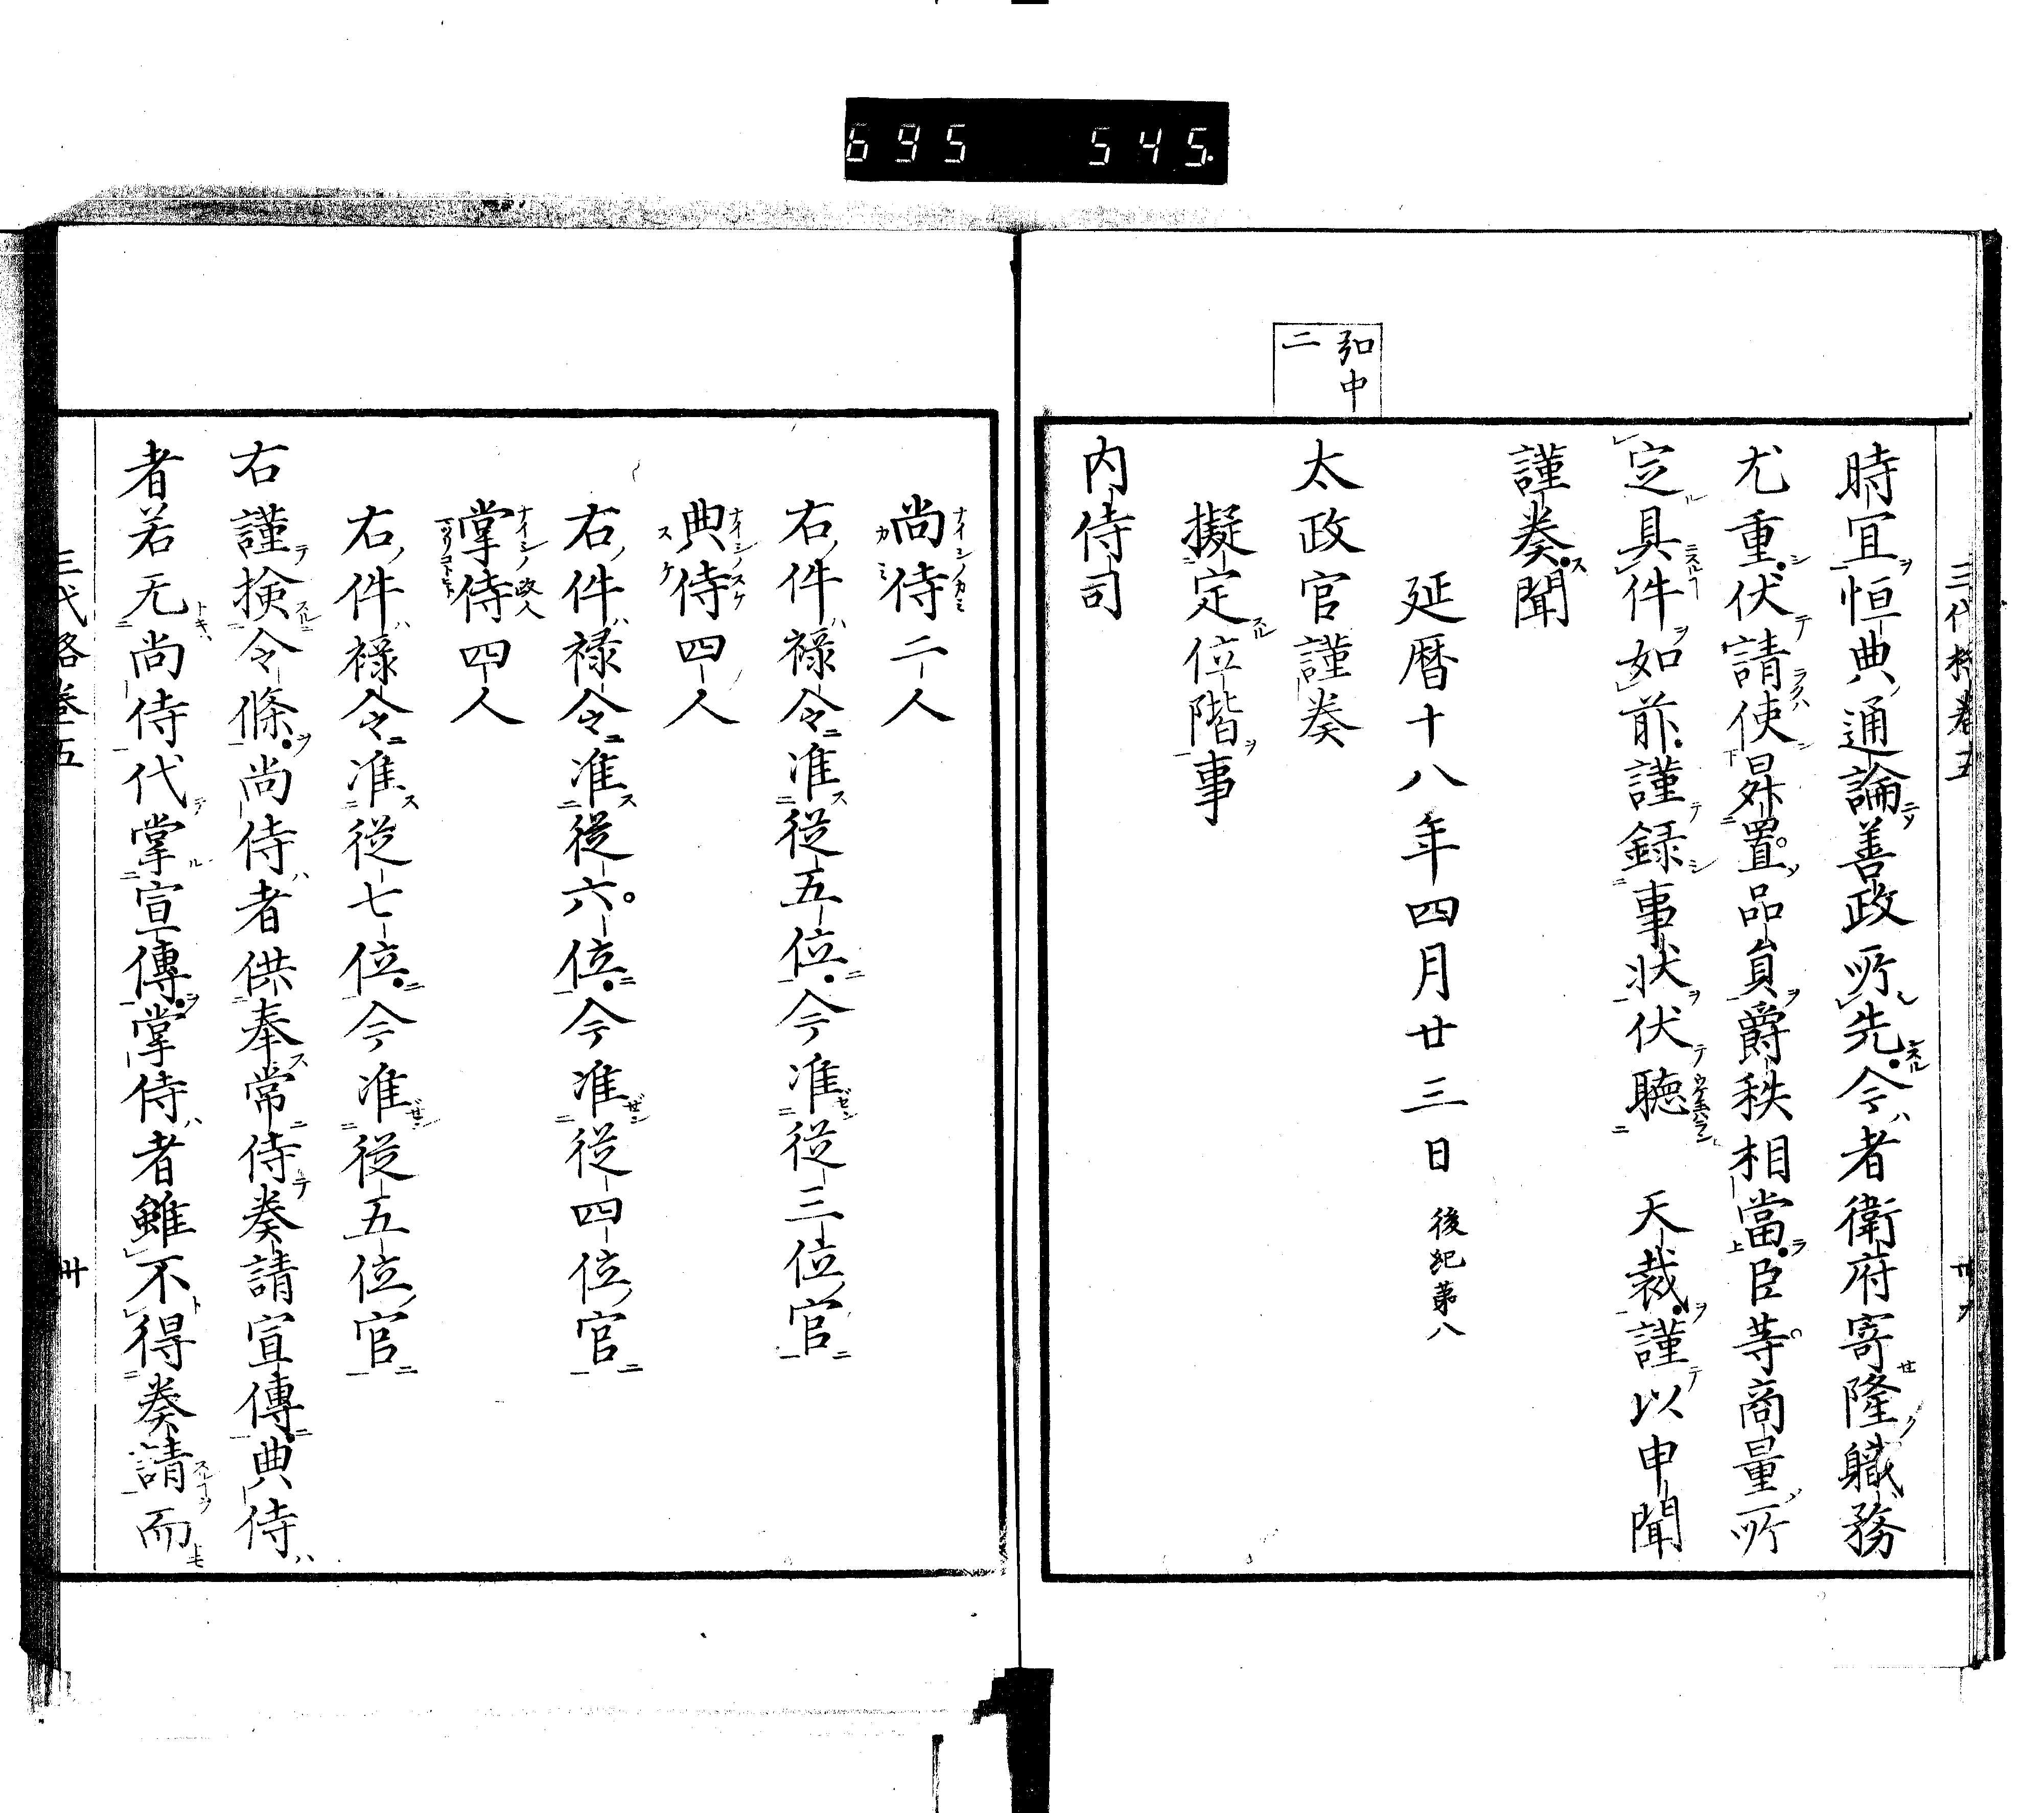 695 545.
弘中
二
時冝恒典通論善政所先今者衛府寄隆職務
尤重伏請使昇置品員爵秩相當臣等商量所
定具件如前謹録事状伏聴 天裁謹以申聞
謹奏聞
延暦十八年四月廿三日 後紀第八
太政官謹奏
擬定位階事
内侍司
尚侍二人
右件禄令准從五位今准從三位官
典侍四人
右件禄令准從六位今准從四位官
掌侍四人
右件禄令准從七位今准從五位官
右謹検令條尚侍者供奉常侍奏請宣傳典侍
者若无尚侍代掌宣傳掌侍者雖不得奏請而
三代格巻五